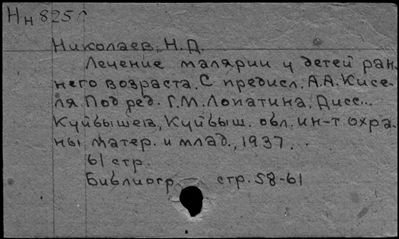 Нн 825
Николаев, Н.Д.
Лечение малярии у детей ран-
него возраста. С предисл. А.А. Кисе-
ля. Под ред. Г.М. Лопатина, Дисс...
Куйбышев, Куйбыш. обл. ин-т охра-
ны матер. и млад., 1937...
61 стр.
Библиогр. стр. 58-61